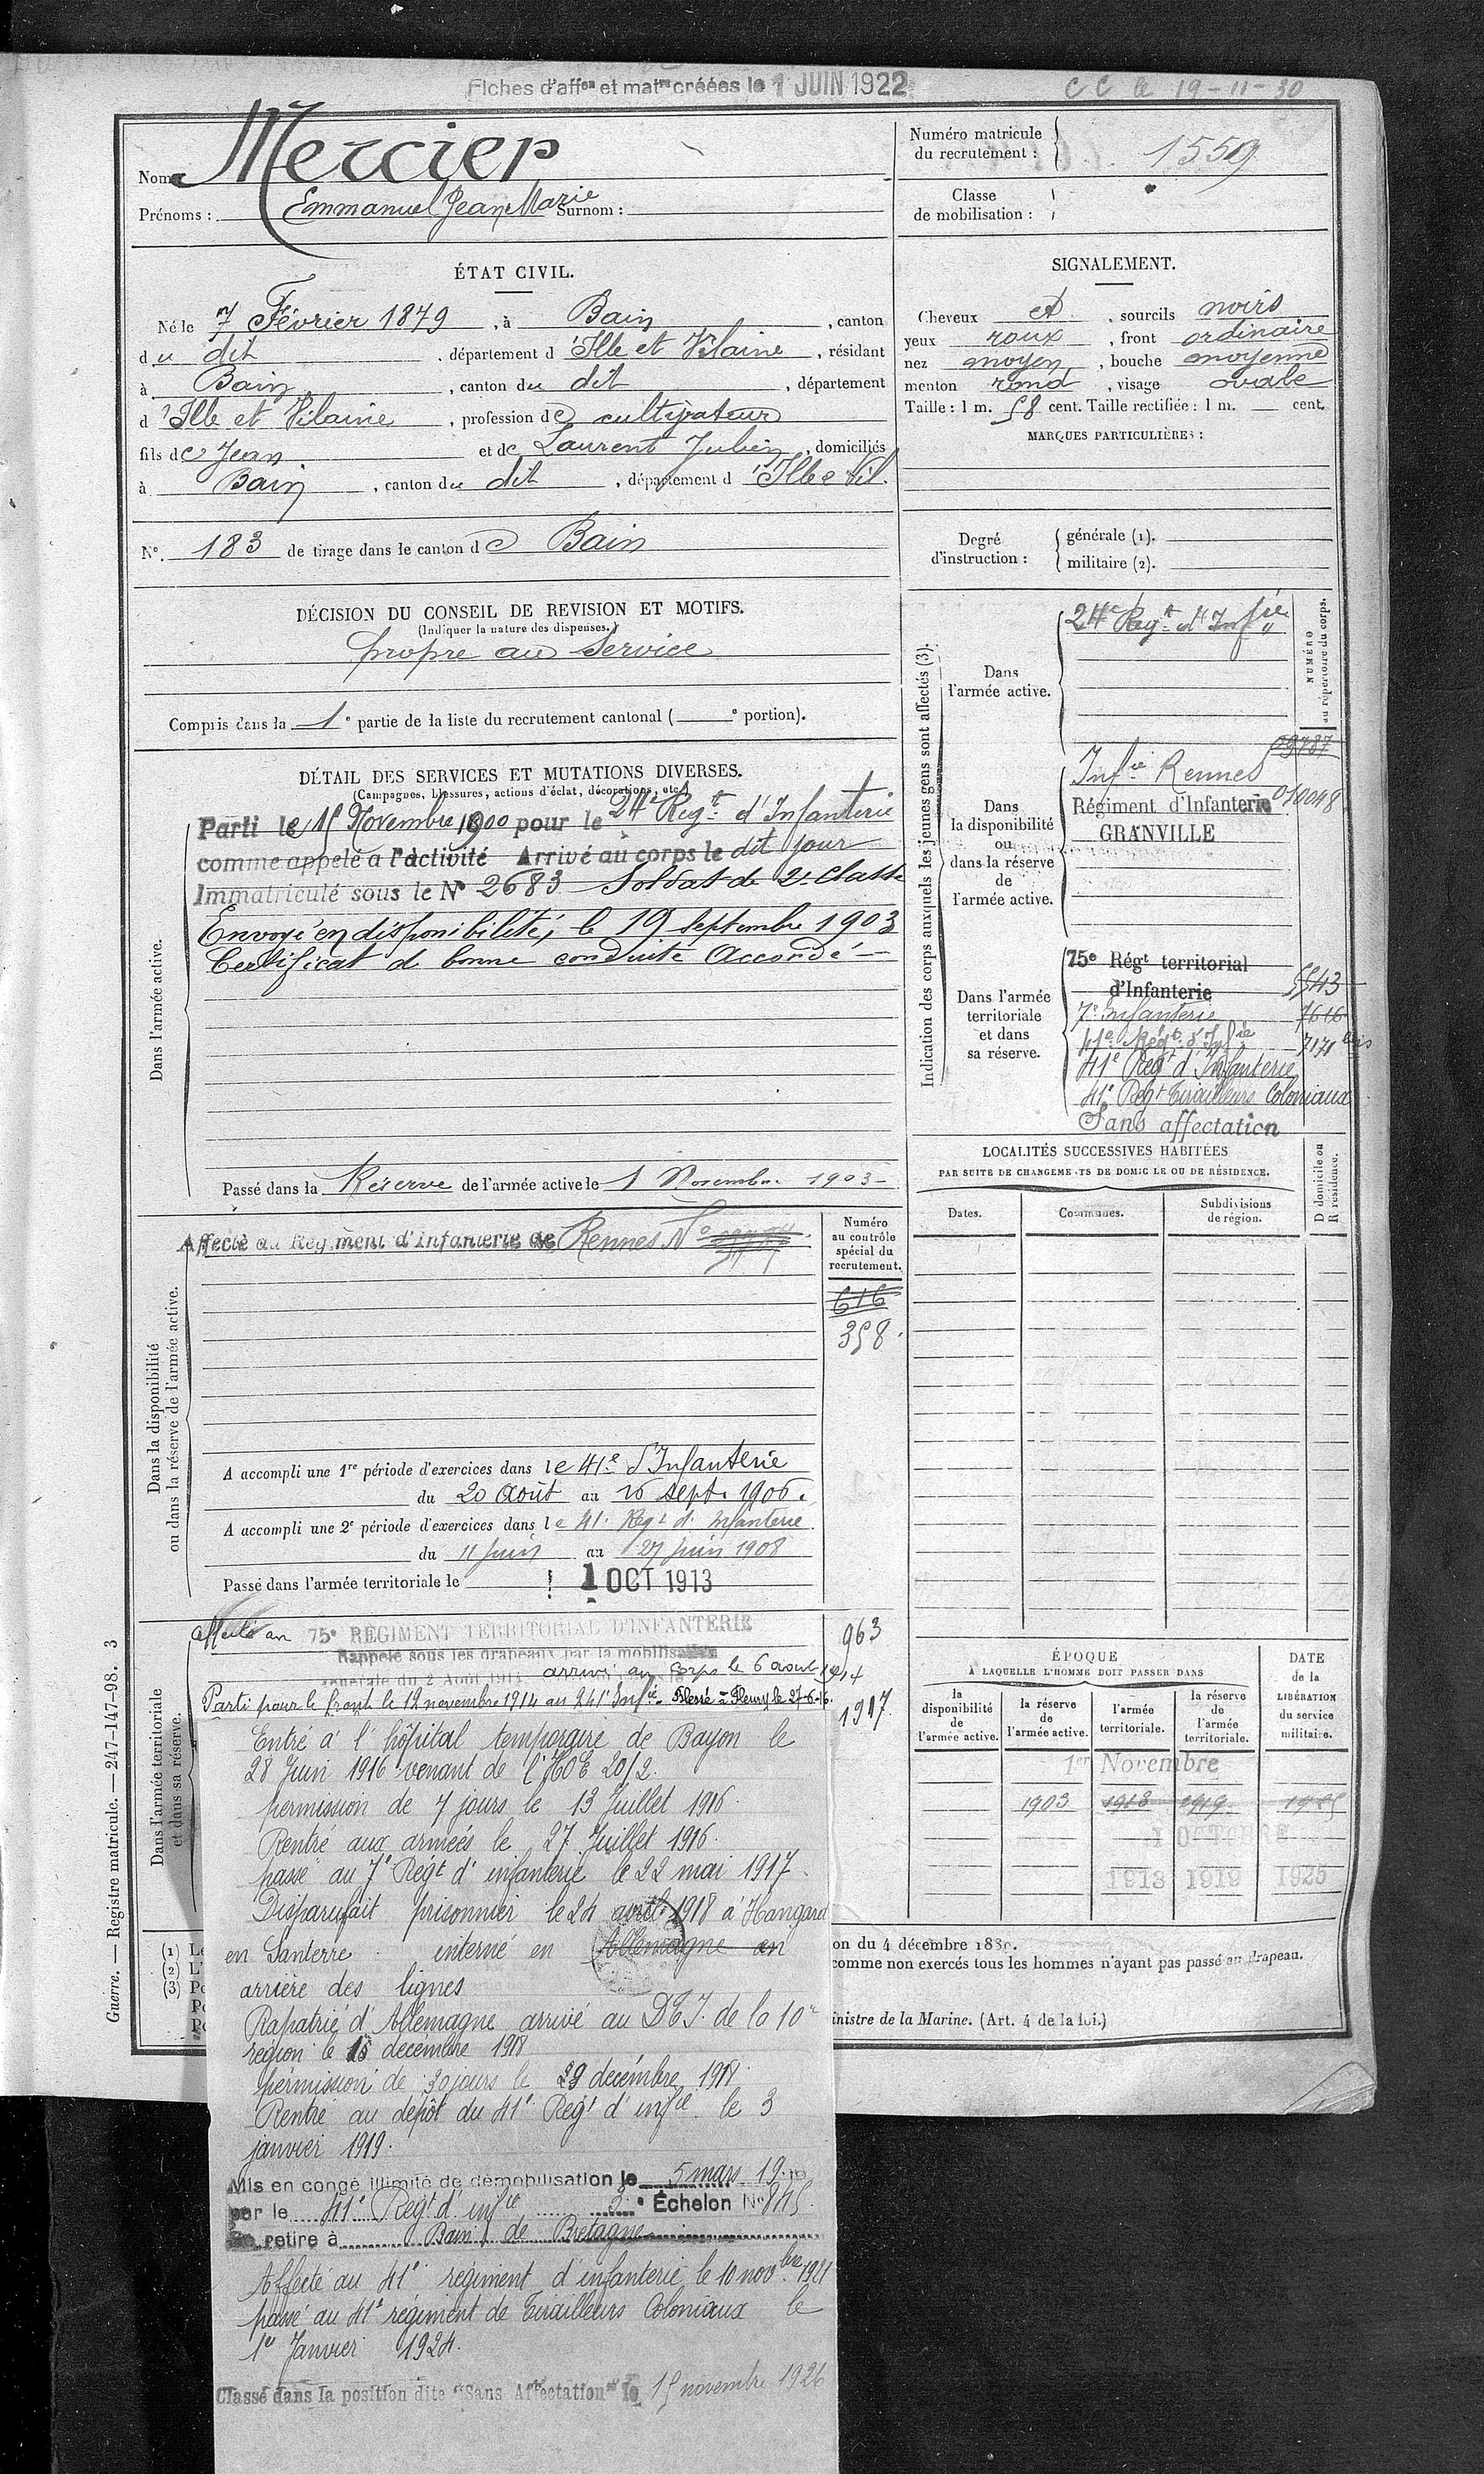 Fiches d'affon et matre créées le 1 JUIN 1922
CC le 19-11-30
Nom : Mercier
Prénoms : Emmanuel Jean Marie Surnom :
Numéro matricule du recrutement : 1559
Classe de mobilisation :
ÉTAT CIVIL.
Né le 7 Février 1879, à Bain, canton
du dit, département d'Ille et Vilaine, résidant
à Bain, canton du dit, département
d'Ille et Vilaine, profession de cultivateur
fils de Jean et de Laurent Julien, domiciliés
à Bain, canton du dit, département d'Ille e Vil.
N°. 183 de tirage dans le canton de Bain
SIGNALEMENT.
Cheveux et, sourcils noirs
yeux roux, front ordinaire
nez moyen, bouche moyenne
menton rond, visage ovale
Taille : 1 m. 58 cent. Taille rectifiée : 1 m. — cent.
MARQUES PARTICULIÈRES :
Degré d'instruction :
générale (1).
militaire (2).
DÉCISION DU CONSEIL DE REVISION ET MOTIFS.
(Indiquer la nature des dispenses.)
propre au service
Compris dans la 1e partie de la liste du recrutement cantonal ( e portion).
DÉTAIL DES SERVICES ET MUTATIONS DIVERSES.
(Campagnes, blessures, actions d'éclat, décorations, etc.)
Dans l'armée active.
Parti le 15 Novembre 1900 pour le 24e Regt d'Infanterie
comme appelé à l'activité Arrivé au corps le dit jour
Immatriculé sous le N° 2683 Soldat de 2e Classe
Envoyé en disponibilité, le 19 septembre 1903
Certificat de bonne conduite Accordé —
Passé dans la Réserve de l'armée active le 1 Novembre 1903 —
Dans la disponibilité ou dans la réserve de l'armée active.
Affecté au Régiment d'Infanterie de Rennes N°
Numéro au contrôle spécial du recrutement.
616
358
A accompli une 1re période d'exercices dans le 41e d'Infanterie
du 20 Août au 16 sept. 1906.
A accompli une 2e période d'exercices dans le 41e Regt d'Infanterie
du 11 juin au 27 juin 1908
Passé dans l'armée territoriale le 1 OCT 1913
Dans l'armée territoriale et dans sa réserve.
Affecté au 75e REGIMENT TERRITORIAL D'INFANTERIE
963
Rappelé sous les drapeaux par la mobilisation
générale du 2 Août 1914 arrivé au corps le 6 aout 1914
Parti pour le front le 12 novembre 1914 au 241e Infie. Blessé à Fleury le 27-6-16.
1917
Entré à l'hôpital temporaire de Bayon le
28 Juin 1916 venant de l'HOE 20/2.
permission de 7 jours le 13 Juillet 1916.
Rentré aux armées le 27 Juillet 1916.
passé au 7e Régt d'infanterie le 22 mai 1917.
Disparu fait prisonnier le 24 avril 1918 à Hangard
en Santerre. interné en Allemagne en
arrière des lignes
Rapatrié d'Allemagne arrivé au D.T.I. de la 10e
région le 15 décembre 1918
permission de 30 jours le 29 décembre 1918.
Rentré au dépôt du 41e Régt d'infie le 3
janvier 1919.
Mis en congé illimité de démobilisation le 5 mars 19
par le 41e Regt d'infie 3e Échelon N° 845
Se retire à Bain de Bretagne
Affecté au 41e régiment d'infanterie le 10 novbre 1921
passé au 41e régiment de Tirailleurs Coloniaux le
1er Janvier 1924.
Classé dans la position dite "Sans Affectation" le 15 novembre 1926
Indication des corps auxquels les jeunes gens sont affectés (3).
NUMÉRO au répertoire du corps.
Dans l'armée active.
24e Regt d'Infie
Dans la disponibilité ou dans la réserve de l'armée active.
09787
Infie Rennes
Régiment d'Infanterie 010048
GRANVILLE
Dans l'armée territoriale et dans sa réserve.
75e Régt territorial
d'Infanterie 5543
7e Infanterie 7616
41e Régt d'Infie 7171 bis
41e Regt d'Infanterie
41e Regt Tirailleurs Coloniaux
Sans affectation
LOCALITÉS SUCCESSIVES HABITÉES
PAR SUITE DE CHANGEMENTS DE DOMICILE OU DE RÉSIDENCE.
Dates. Communes. Subdivisions de région. D domicile ou R résidence.
ÉPOQUE
À LAQUELLE L'HOMME DOIT PASSER DANS
la disponibilité de l'armée active.
la réserve de l'armée active.
l'armée territoriale.
la réserve de l'armée territoriale.
DATE de la LIBÉRATION du service militaire.
1er Novembre
1903 1913 1919 1925
1 OCTOBRE
1913 1919 1925
(1) Le
(2) L'
(3) Po
Po
Po
on du 4 décembre 1889.
comme non exercés tous les hommes n'ayant pas passé au drapeau.
inistre de la Marine. (Art. 4 de la loi.)
Guerre. — Registre matricule. — 247-147-98. 3